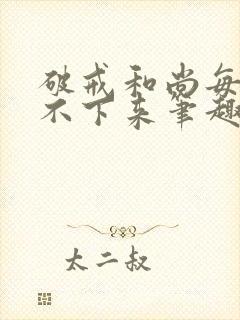 破戒和尚每
不下来笔趣
太二叔